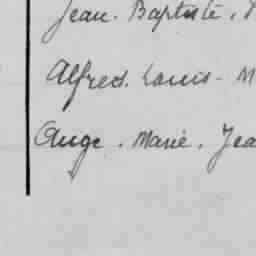 Jean. Baptiste.
Alfred. Louis - M
Ange. Marie. Jea